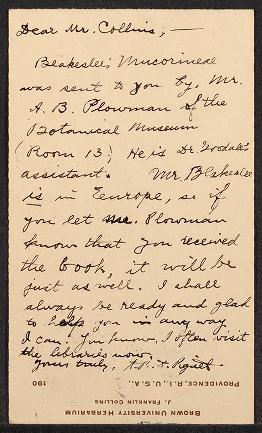 Dear Mr. Collins; —
Blakeslee's Mucorineae
was sent to you by Mr.
A. B. Plowman of the
Botanical Museum
(Room 13). He is Dr Goodale's
assistant. Mr. Blakeslee
is in Europe, so if
you let Mr. Plowman
know that you received
the book, it will be
just as well. I shall
always be ready and glad
to help you in any way
I can. You know, I often visit
the libraries now.
Yours truly,
190
PROVIDENCE, R. I., U. S. A.,
J. FRANKLIN COLLINS
BROWN UNIVERSITY HERBARIUM